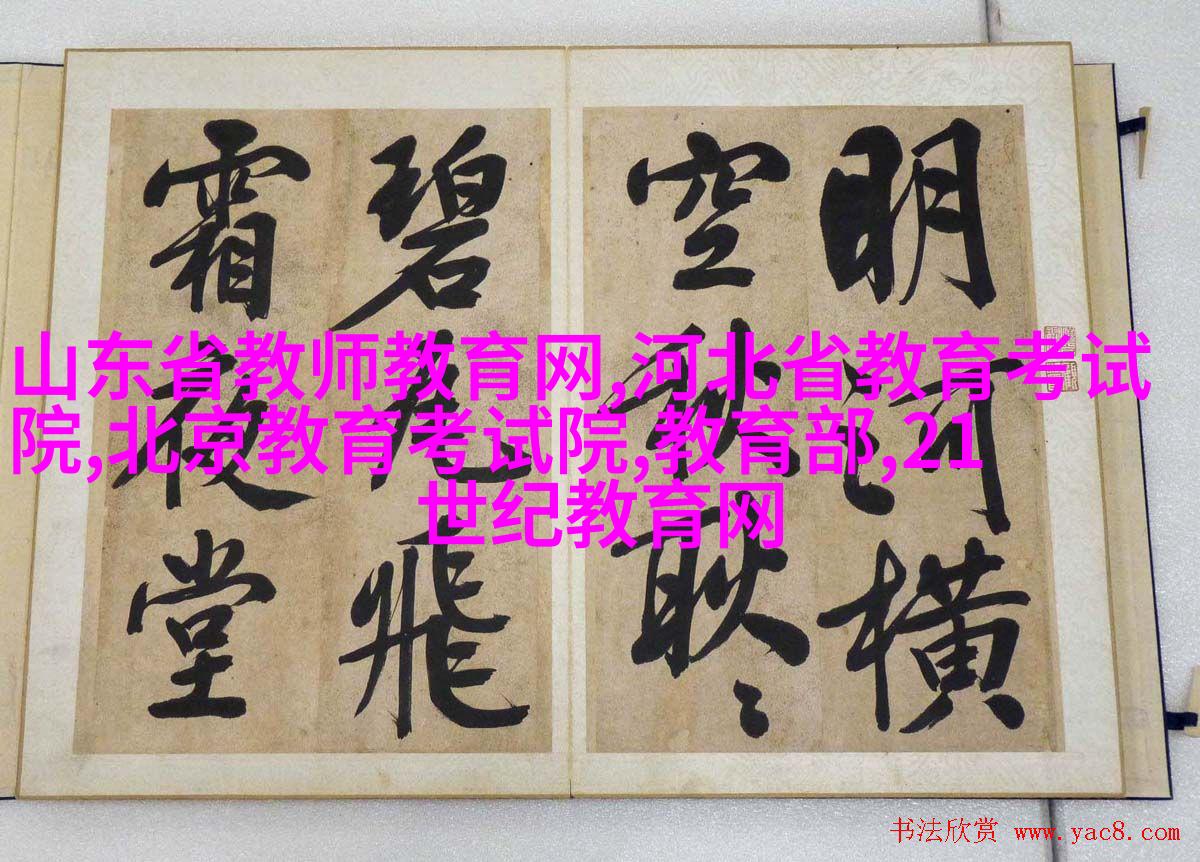 明河橫
空秋耿〻
碧瓦飛
霜夜堂
山东省教师教育网,河北省教育考试
院,北京教育考试院,教育部,21
世纪教育网
书法欣赏 www.yac8.com